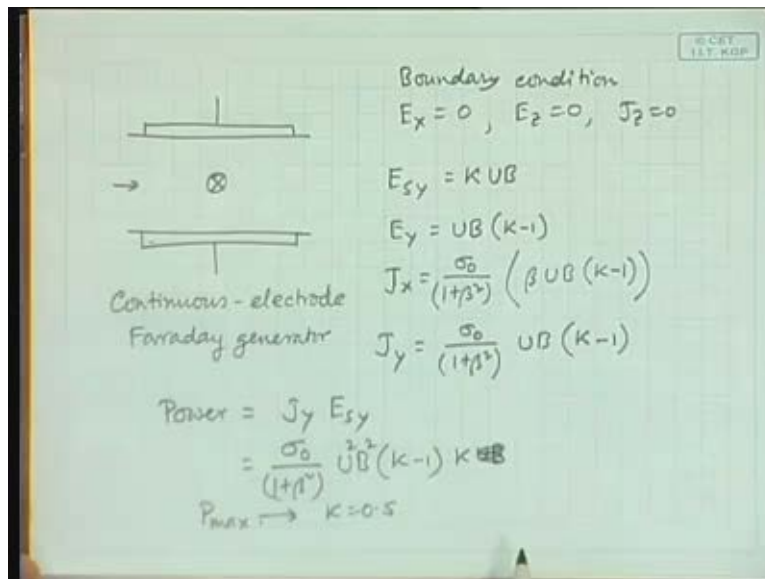 © CET
I.I.T. KGP
Boundary condition
E_x = 0 , E_z = 0, J_z = 0
→ ⊗
E_sy = K U B
E_y = U B (K-1)
J_x = σ_0/(1+β²) (β U B (K-1))
Continuous-electrode
Farraday generator
J_y = σ_0/(1+β²) U B (K-1)
Power = J_y E_sy
= σ_0/(1+β²) U² B² (K-1) K
P_max. → K = 0.5